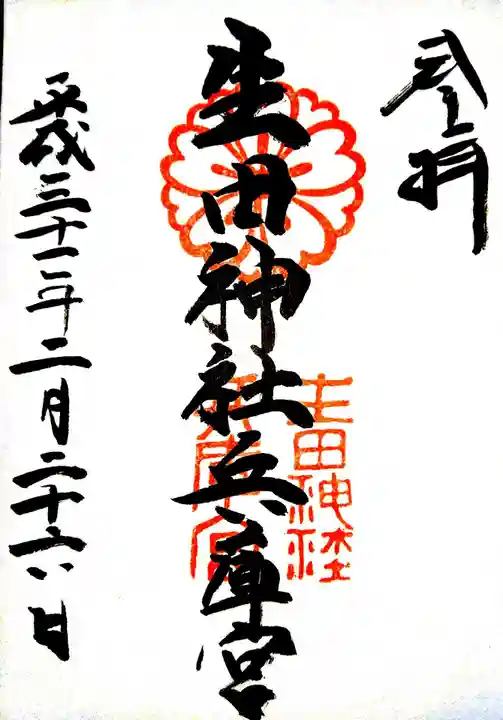 奉拝
生田神社兵庫宮
生田神社
兵庫宮
平成三十一年二月二十六日